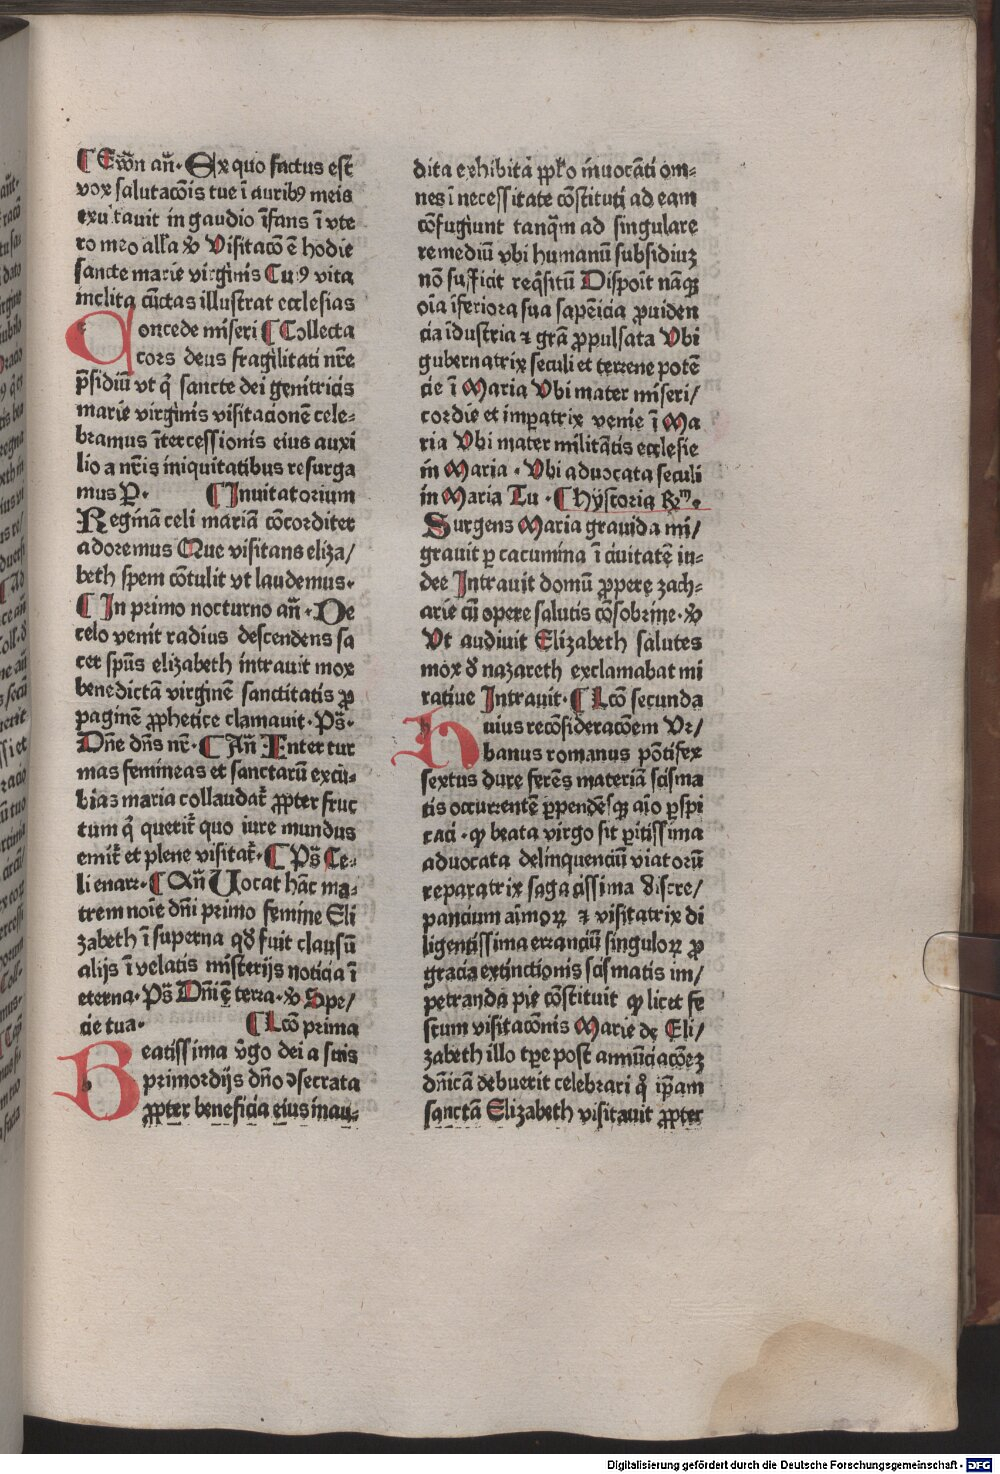 ¶ Ewn̄ an̄. Ex quo factus est
vox salutacōis tue ī auribꝰ meis
exultauit in gaudio īfans ī vte
ro meo all'a Visitacō ē hodie
sancte marie virginis Cuiꝰ vita
inclita cūctas illustrat ecclesias
oncede miseri ¶ Collecta
C cors deus fragilitati nr̄e
p̄sidiū vt qͥ sancte dei genitricis
marie virginis visitacionē cele⸗
bramus ītercessionis eius auxi
lio a nr̄is iniquitatibus resurga
mus P. ¶ Inuitatorium
Reginā celi mariā cōcorditer
adoremus Que visitans eliza/
beth spem cōtulit vt laudemus.
¶ In primo nocturno an̄. De
celo venit radius descendens sa
cer spūs elizabeth intrauit mox
benedictā virginē sanctitatis ꝓ
paginē ꝓphetice clamauit. Ps̄.
Dn̄e dn̄s nr̄. ¶ An̄ Enter tur
mas femineas et sanctarū excu⸗
bias maria collaudat̄ ꝓpter fruc
tum qͥ querit̄ quo iure mundus
emit̄ et plene visitat̄. ¶ Ps̄ Ce⸗
li enarr. ¶ An̄ Uocat hāc ma⸗
trem noīe dn̄i primo femine Eli
zabeth ī superna qd̄ fuit clausū
alijs ī velatis misterijs noticia ī
eterna. Ps̄ Dn̄i ē terra. Spe/
cie tua. ¶ Lcō prima
Beatissima v̄go dei a suis
primordijs dn̄o ↄsecrata
ꝓpter beneficia eius inau⸗
dita exhibita pplo inuocāti om⸗
nes ī necessitate cōstituti ad eam
cōfugiunt tanqm̄ ad singulare
remediū vbi humanū subsidiuz
nō sufficit reqͥsitū Dispoīt nāqꝫ
oīa īferiora sua sapiēcia ꝓuiden
cia īdustria ⁊ grā ꝓpulsata Vbi
gubernatrix seculi et terrene potē
cie ī Maria Vbi mater miseri/
cordie et impatrix venie ī Ma
ria Vbi mater militātis ecclesie
in Maria. Vbi aduocata seculi
in Maria Tu. ¶ hystoria Rm̄.
Surgens Maria grauida mi/
grauit ꝑ cacumina ī ciuitatē iu⸗
dee Intrauit domū ꝓpere zach⸗
arie cū opere salutis cōsobrine.
Vt audiuit Elizabeth salutes
mox d̄ nazareth exclamabat mi
ratiue Intrauit. ¶ Lcō secunda
Huius recōsideracōem Vr/
banus romanus pōtifex
sextus dure ferēs materiā scisma
tis occurrentē ꝑpendēsqꝫ aīo ꝑspi
caci. ꝙ beata virgo sit ꝑitissima
aduocata delinquenciū viatorū
reparatrix sagacissima discre/
pancium aīmoꝝ ⁊ visitatrix di
ligentissima erranciū singuloꝝ ꝓ
gracia extinctionis scismatis im/
petranda pie cōstituit ꝙ licet fe
stum visitacōnis Marie de Eli/
zabeth illo tꝑe post annūciacōez
dn̄icā debuerit celebrari qͦ ip̄am
sanctā Elizabeth visitauit ꝓpter
Digitalisierung gefördert durch die Deutsche Forschungsgemeinschaft - DFG